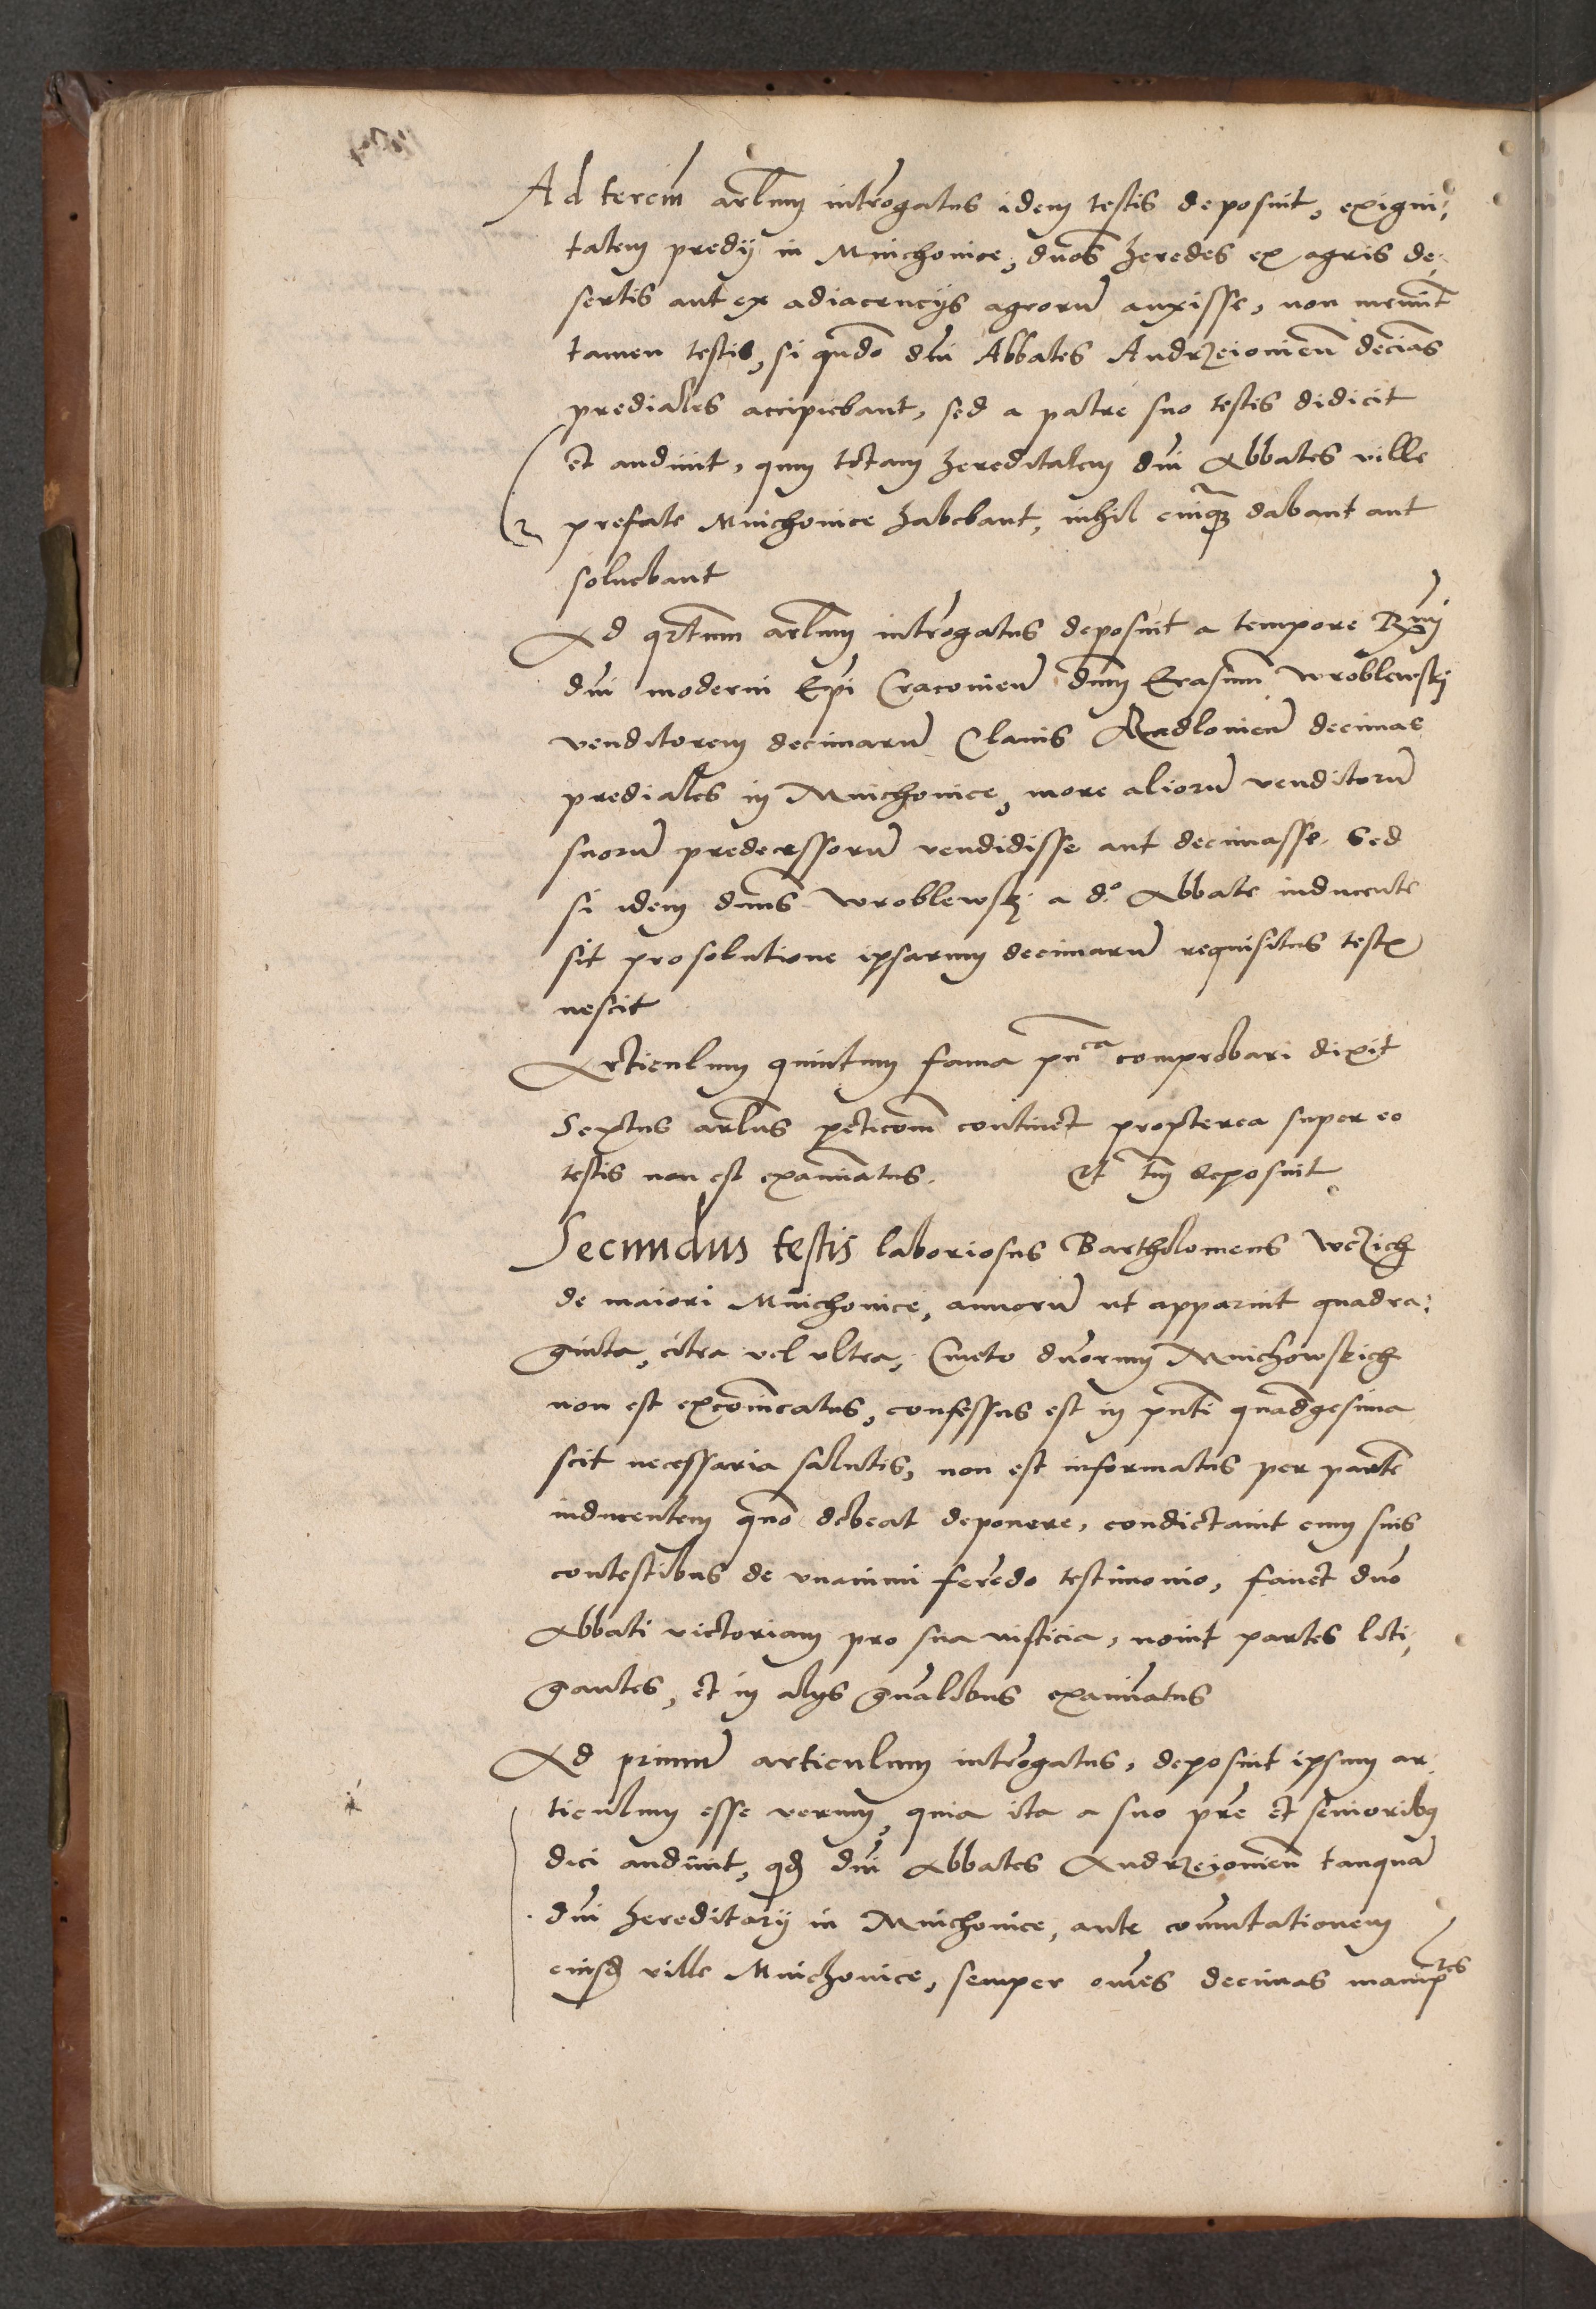 Ad terciũ arłum introgatus idem testis deposuit, exigui-
tatem predij in Mnichovice, duos heredes ex agris de-
sertis aut ex adiacencijs agrorũ auxisse, non meminit
tamen testis, si quãdo dñi Abbates Andrzeiovieñ decĩas
prediales accipiebant, sed a patre suo testis didicit
et audiuit, qum totam hereditatem dñi Abbates ville
prefate Mnichovice habebant, nihil cuiqꝫ dabant aut
soluebant
Ad qrtum arłum introgatus deposuit a tempore Rmi
dñi moderni Epi Cracovieñ dñm Erasmũ Wroblewskj
venditorem decimarũ Clavis Radlovieñ decimas
prediales in Mnichovice, more aliorũ venditorũ
suorũ predecessorũ vendidisse aut decimasse. Sed
si idem dñus Wroblewskj a dº Abbate inducente
sit pro solutione ipsarum decimarũ requisitus testis
nescit
Articulum quintum fama pũca comprobari dixit
Sextus arłus peticõem continet propterea super eo
testis non est examinatus. Et tm̃ deposuit
Secundus testis laboriosus Bartholomeus Wczich
de maiori Mnichovice, annorũ ut apparuit quadra-
ginta, citra vel vltra, Cmeto dñorum Mnichowskich
non est excõicatus, confessus est in pñti quadgesima
scit necessaria salutis, non est informatus per partẽ
inducentem quõ debeat deponere, condictauit cum suis
contestibus de vnanimi ferẽdo testimonio, fauet dño
Abbati victoriam pro sua iusticia, nouit partes liti-
gantes, et in alijs gñalibus examinatus
Ad primũ articulum introgatus, deposuit ipsum ar-
ticulum esse verum, quia ita a suo pre et senioribꝫ
dici audiuit, qđ dñi Abbates Andrzeiovieñ tanquã
dñi hereditarij in Mnichovice, ante cõmutationem
eiusđ ville Mnichovice, semper omẽs decimas manip̃res